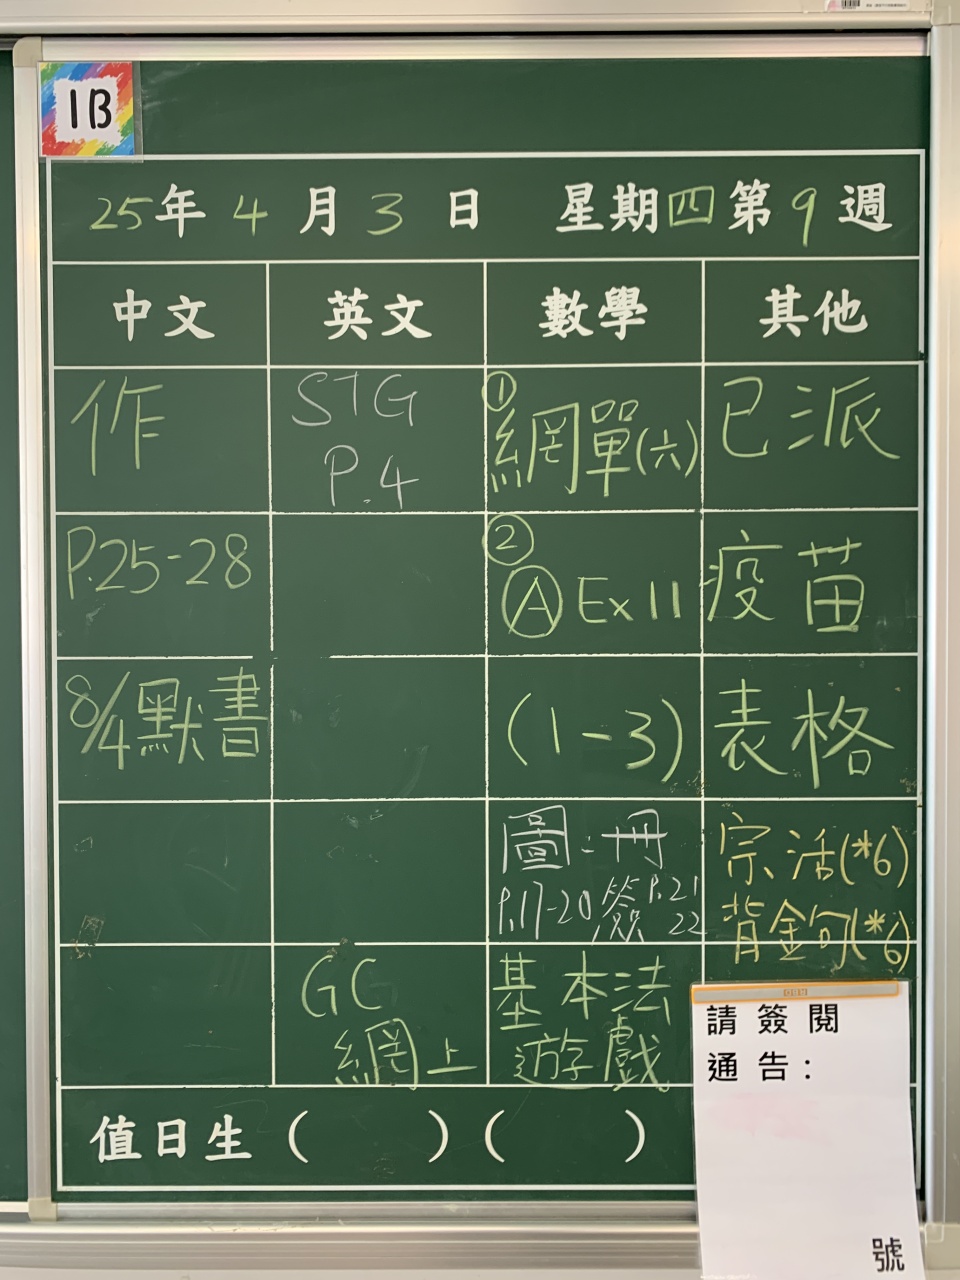 1B
25年4月3日 星期四第9週
中文 英文 數學 其他
作
P.25-28
8/4默書
STG
P.4
GC
網上
①
網單(六)
②
Ⓐ Ex 11
(1-3)
圖:冊
P.17-20 簽 P.21
22
基本法
遊戲
已派
疫苗
表格
宗活(*6)
背金句(*6)
請簽閱
通告:
號
值日生( )( )